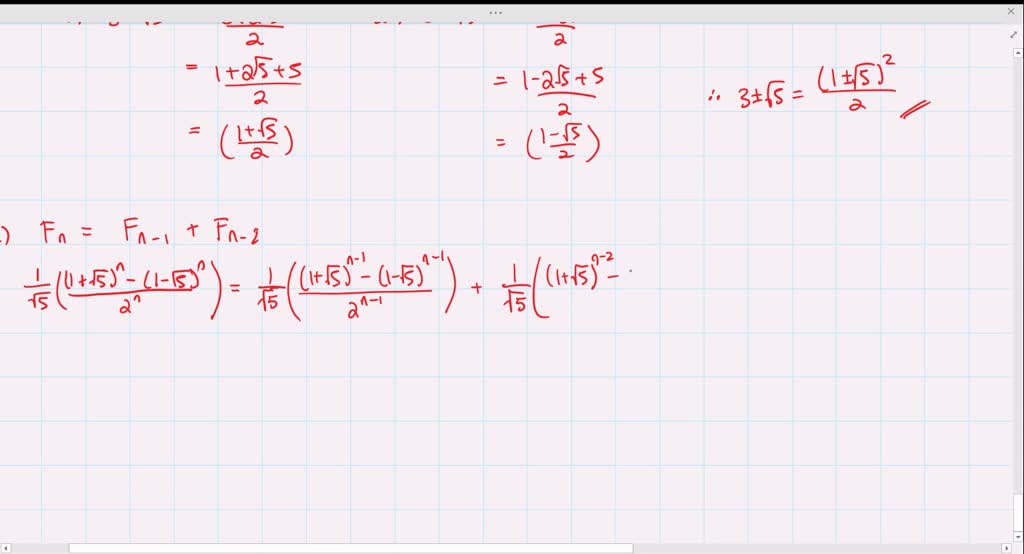 2
2
= 1+2√5+5 / 2
= 1-2√5+5 / 2
∴ 3±√5 = (1±√5)² / 2
= (1+√5 / 2)
= (1-√5 / 2)
) Fn = Fn-1 + Fn-2
1/√5 ((1+√5)ⁿ - (1-√5)ⁿ / 2ⁿ) = 1/√5 ((1+√5)ⁿ⁻¹ - (1-√5)ⁿ⁻¹ / 2ⁿ⁻¹) + 1/√5 ((1+√5)ⁿ⁻² -